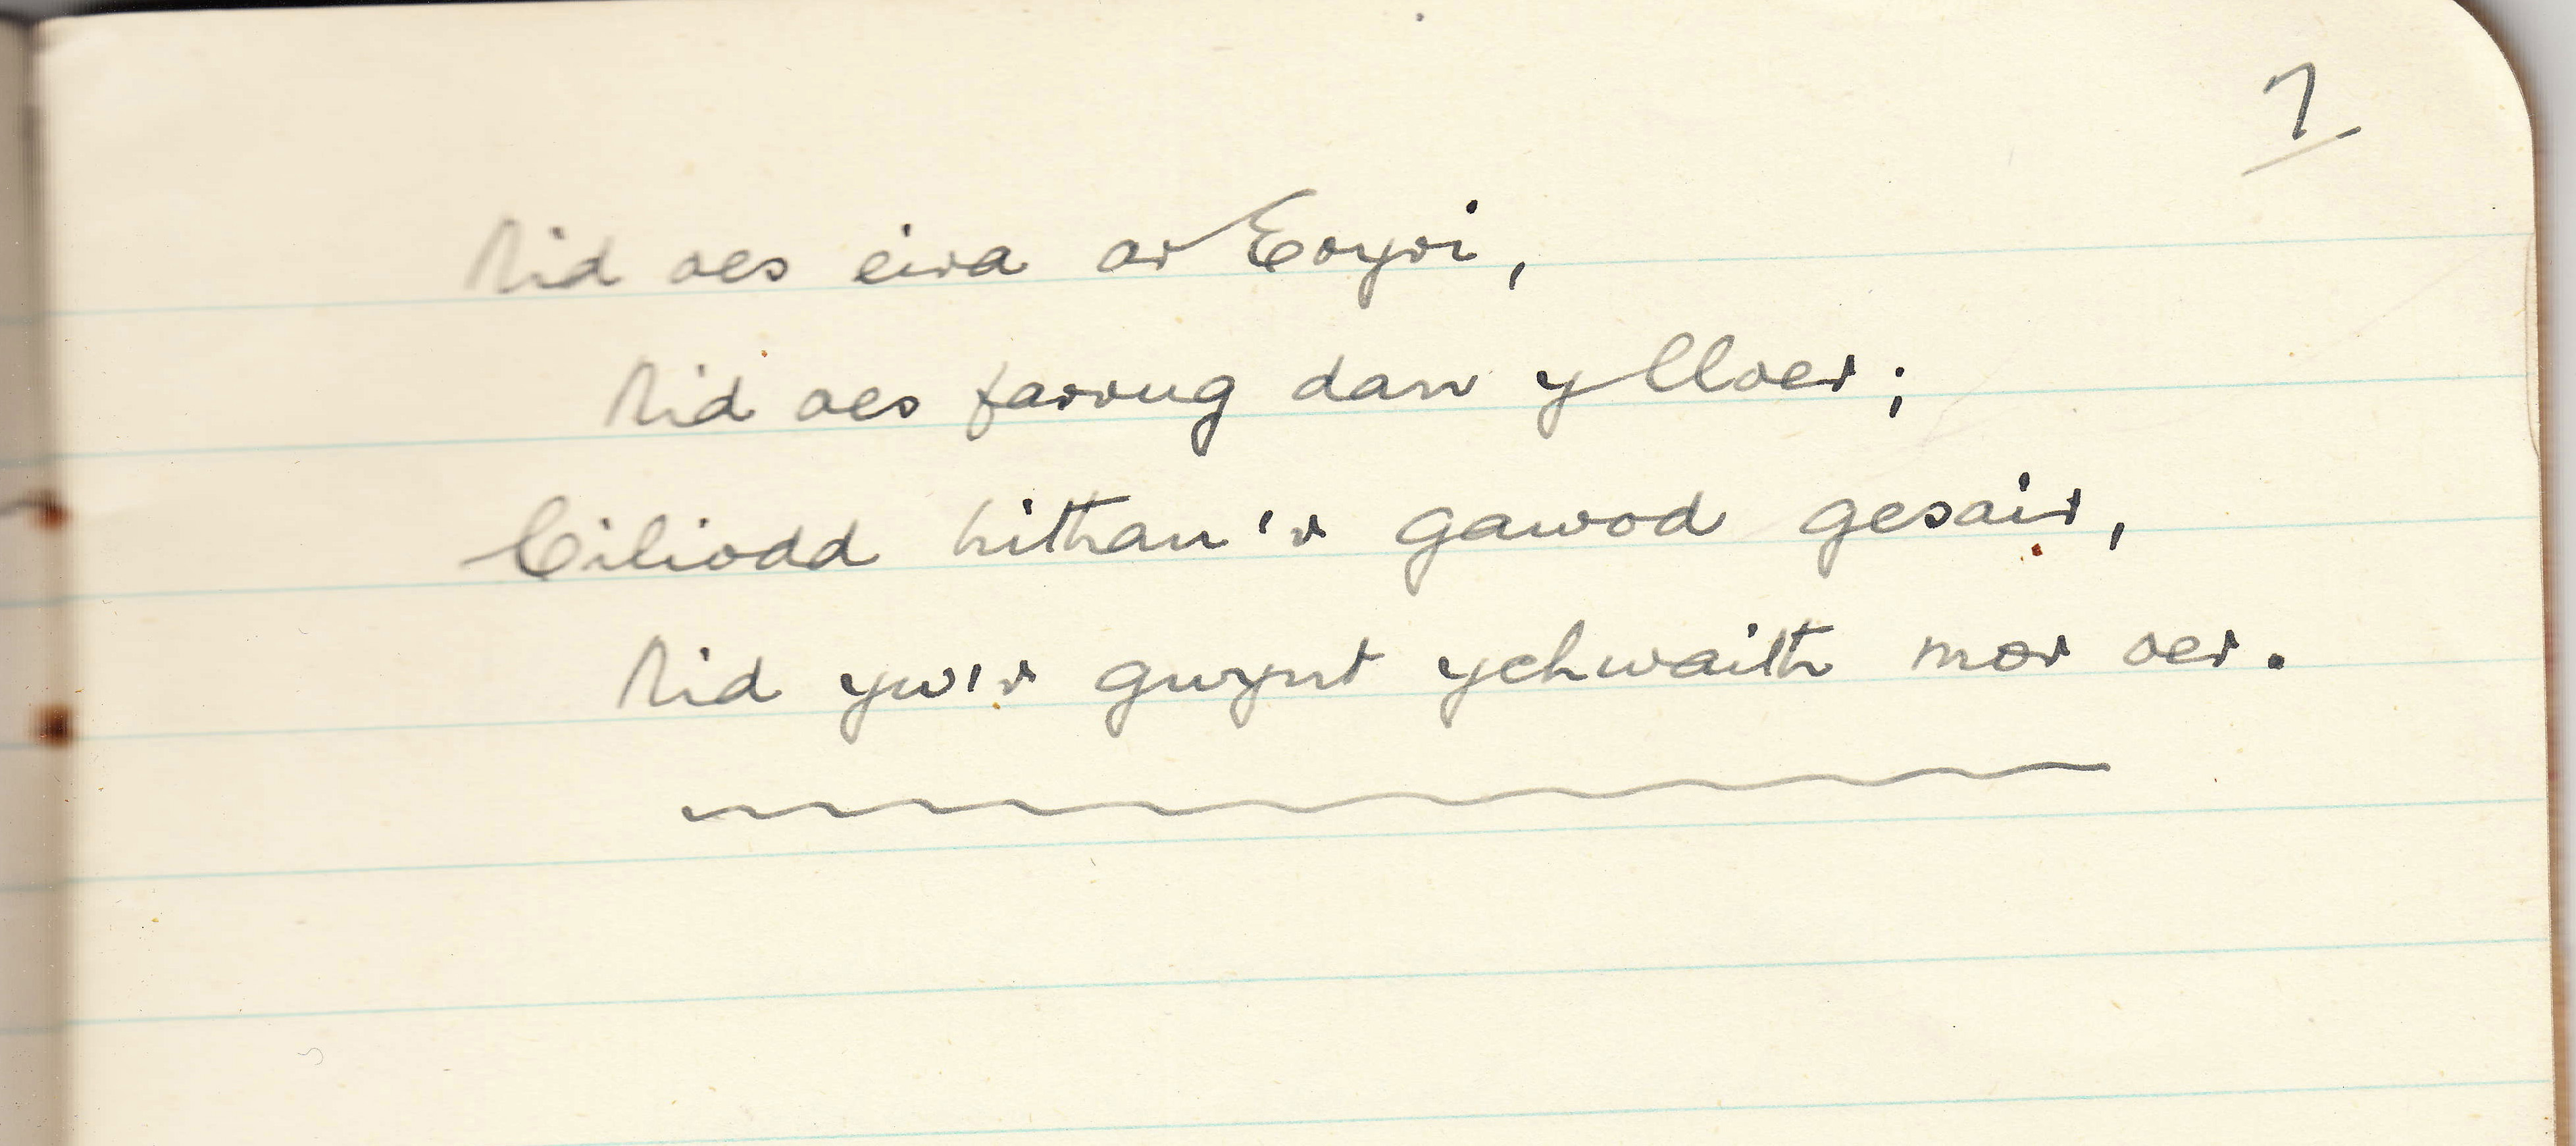 7
Nid oes eira ar Eryri,
Nid oes farrug dan y lloer;
Ciliodd hithau'r gawod gesair,
Nid yw'r gwynt ychwaith mor oer.